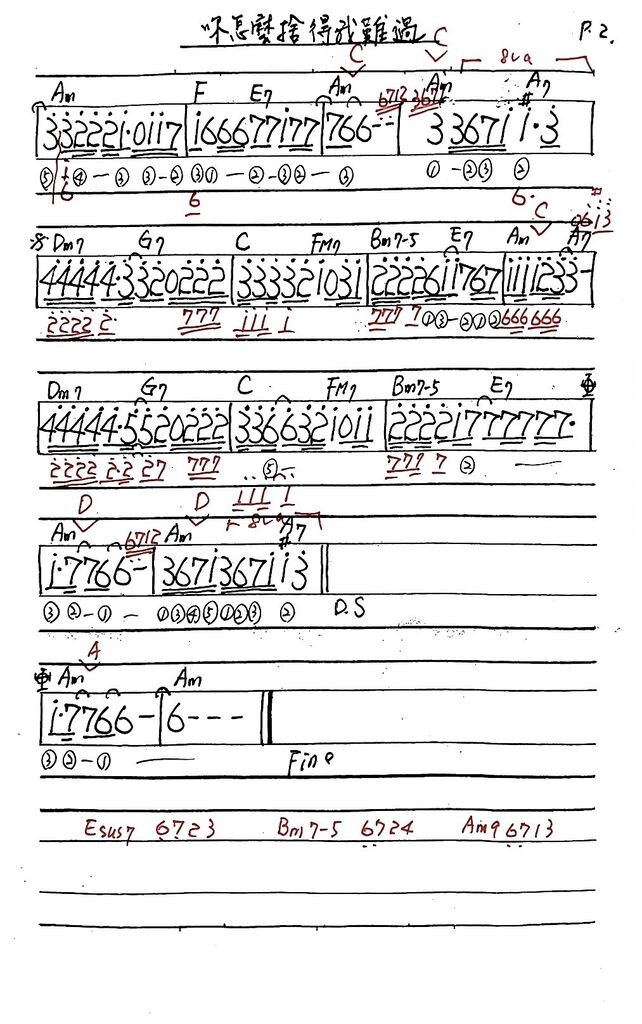 你怎麼捨得我難過 P.2.
C C 8va
Am F E7 Am Am A7
6712 3671
332221·0117 16667 7177 766-- 33671 1·3
⑤ ④-③ ③-② ③①-②-③②-③ ①-②③ ②
6 6 6·
C #613
Dm7 G7 C FM7 Bm7-5 E7 Am A7
44444·3320222 333321031 2222611767 1111233-
2222 2· 777 111 1 777 7 ①③-②①② 666 666
Dm7 G7 C FM7 Bm7-5 E7
44444·5520222 3366321011 22221777777·
2222 22 27 777 ⑤- 777 7 ②
D D 111 1 8va
Am 6712 Am A7
1·7766- 36713671 1 3
③②-①- ①③④⑤①②③ ② D.S
A
Am Am
1·7766- 6---
③②-①
Fine
Esus7 6723 Bm7-5 6724 Am9 6713